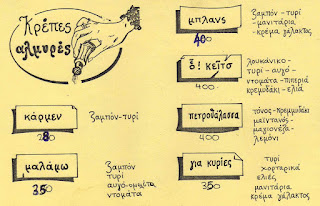 Κρέπες
αλμυρές
κάρμεν
ζαμπόν-τυρί
280
μαλάμω
350
ζαμπόν
τυρί
αυγό-ομελέτα
ντομάτα
μπλανς
400
ζαμπόν-τυρί
-μανιτάρια
-κρέμα γάλακτος
ὅ! κεῖτο
400
λουκάνικο-
τυρί-αυγό-
ντομάτα-πιπεριά
κρεμυδάκι-ελιά
πετροθάλασσα
400
τόνος-κρεμμυδάκι
μαϊντανός-
μαχιονέζα-
λεμόνι
για κυρίες
350
τυρί
χορταρικά
ελιές
μανιτάρια
κρέμα γάλακτος